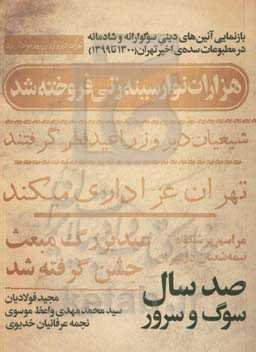 بازنمایی آئین‌های دینی سوگوارانه و شادمانه
در مطبوعات سده‌ی اخیر تهران (۱۳۰۰ تا ۱۳۹۹)
هزاران نوار سینه زنی فروخته شد
شیعیان دیروز را عید فطر گرفتند
تهران عزاداری میکند
مراسم پرشکوه
نیمه شعبان
عید بزرگ مبعث
جشن گرفته شد
صد سال
سوگ و سرور
مجید فولادیان
سید محمد مهدی واعظ موسوی
نجمه عرفانیان خدیوی